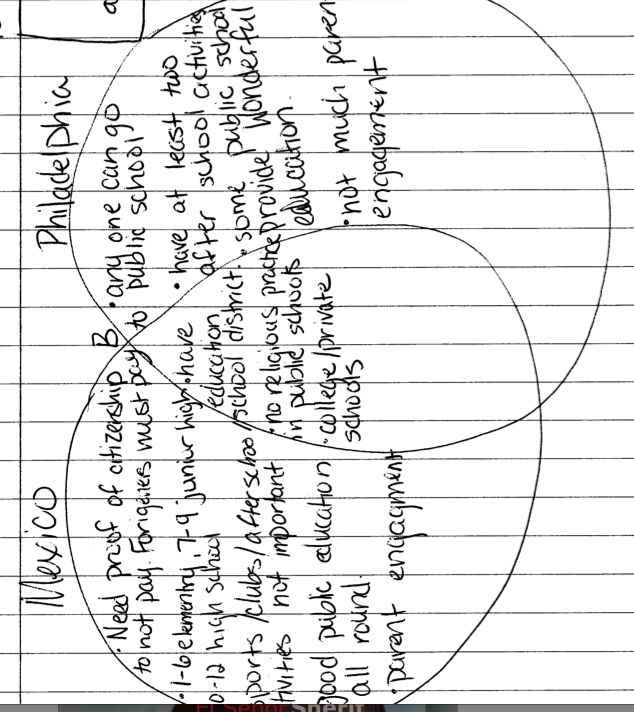 Mexico
• Need proof of citizenship
to not pay. Forigeiers must pay
• 1-6 elementry, 7-9 junior high
0-12 high school
ports /clubs/afterschool
tivities not important
good public education
all round.
• parent engagment
B
• have
education
/school district.
• no religious practice
in public schools
• college/private
schools
Philadelphia
• any one can go
to public school
• have at least two
after school activities
• some public school
provide wonderful
education.
• not much paren
engagement